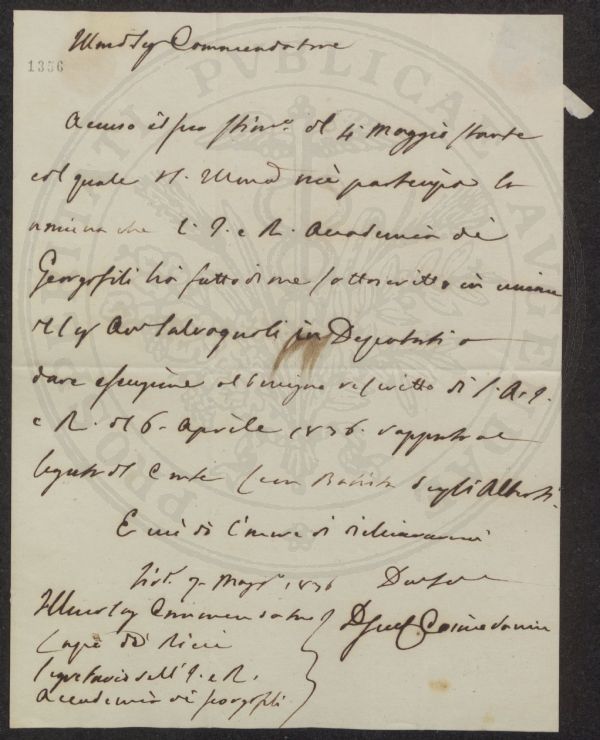 Illmo Sig Commendatore
1356
Accuso il suo stim.o del 4 Maggio stante
col quale V.S. Illma mi partecipa la
nomina che l'I. e R. Accademia dei
Georgofili ha fatto di me sottoscritto in unione
del Sig Avv Salvagnoli in Deputati a
dare esecuzione al benigno rescritto di S.A.I.
e R. del 6 Aprile 1836. rapporto al
legato del Conte Leon Battista degli Alberti.
E mi dò l'onore di dichiararmi
7 Magg. 1836
Illmo Sig Commendatore
Lapo de Ricci
Segretario dell'I. e R.
Accademia dei Georgofili
PVBLICAE
AVGENDAE
PROSPERITATI